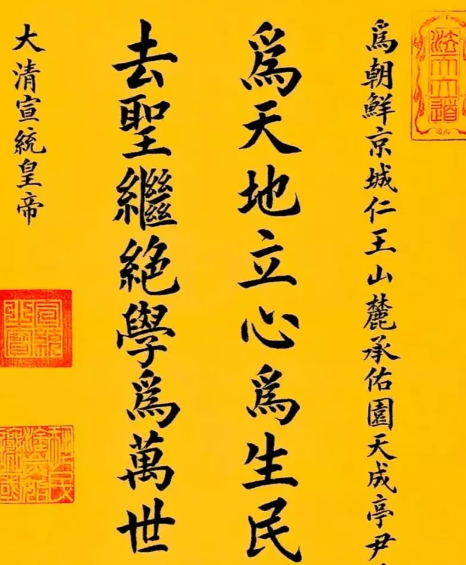 爲朝鮮京城仁王山麓承佑園天成亭尹
爲天地立心爲生民
去聖繼絕學爲萬世
大清宣統皇帝